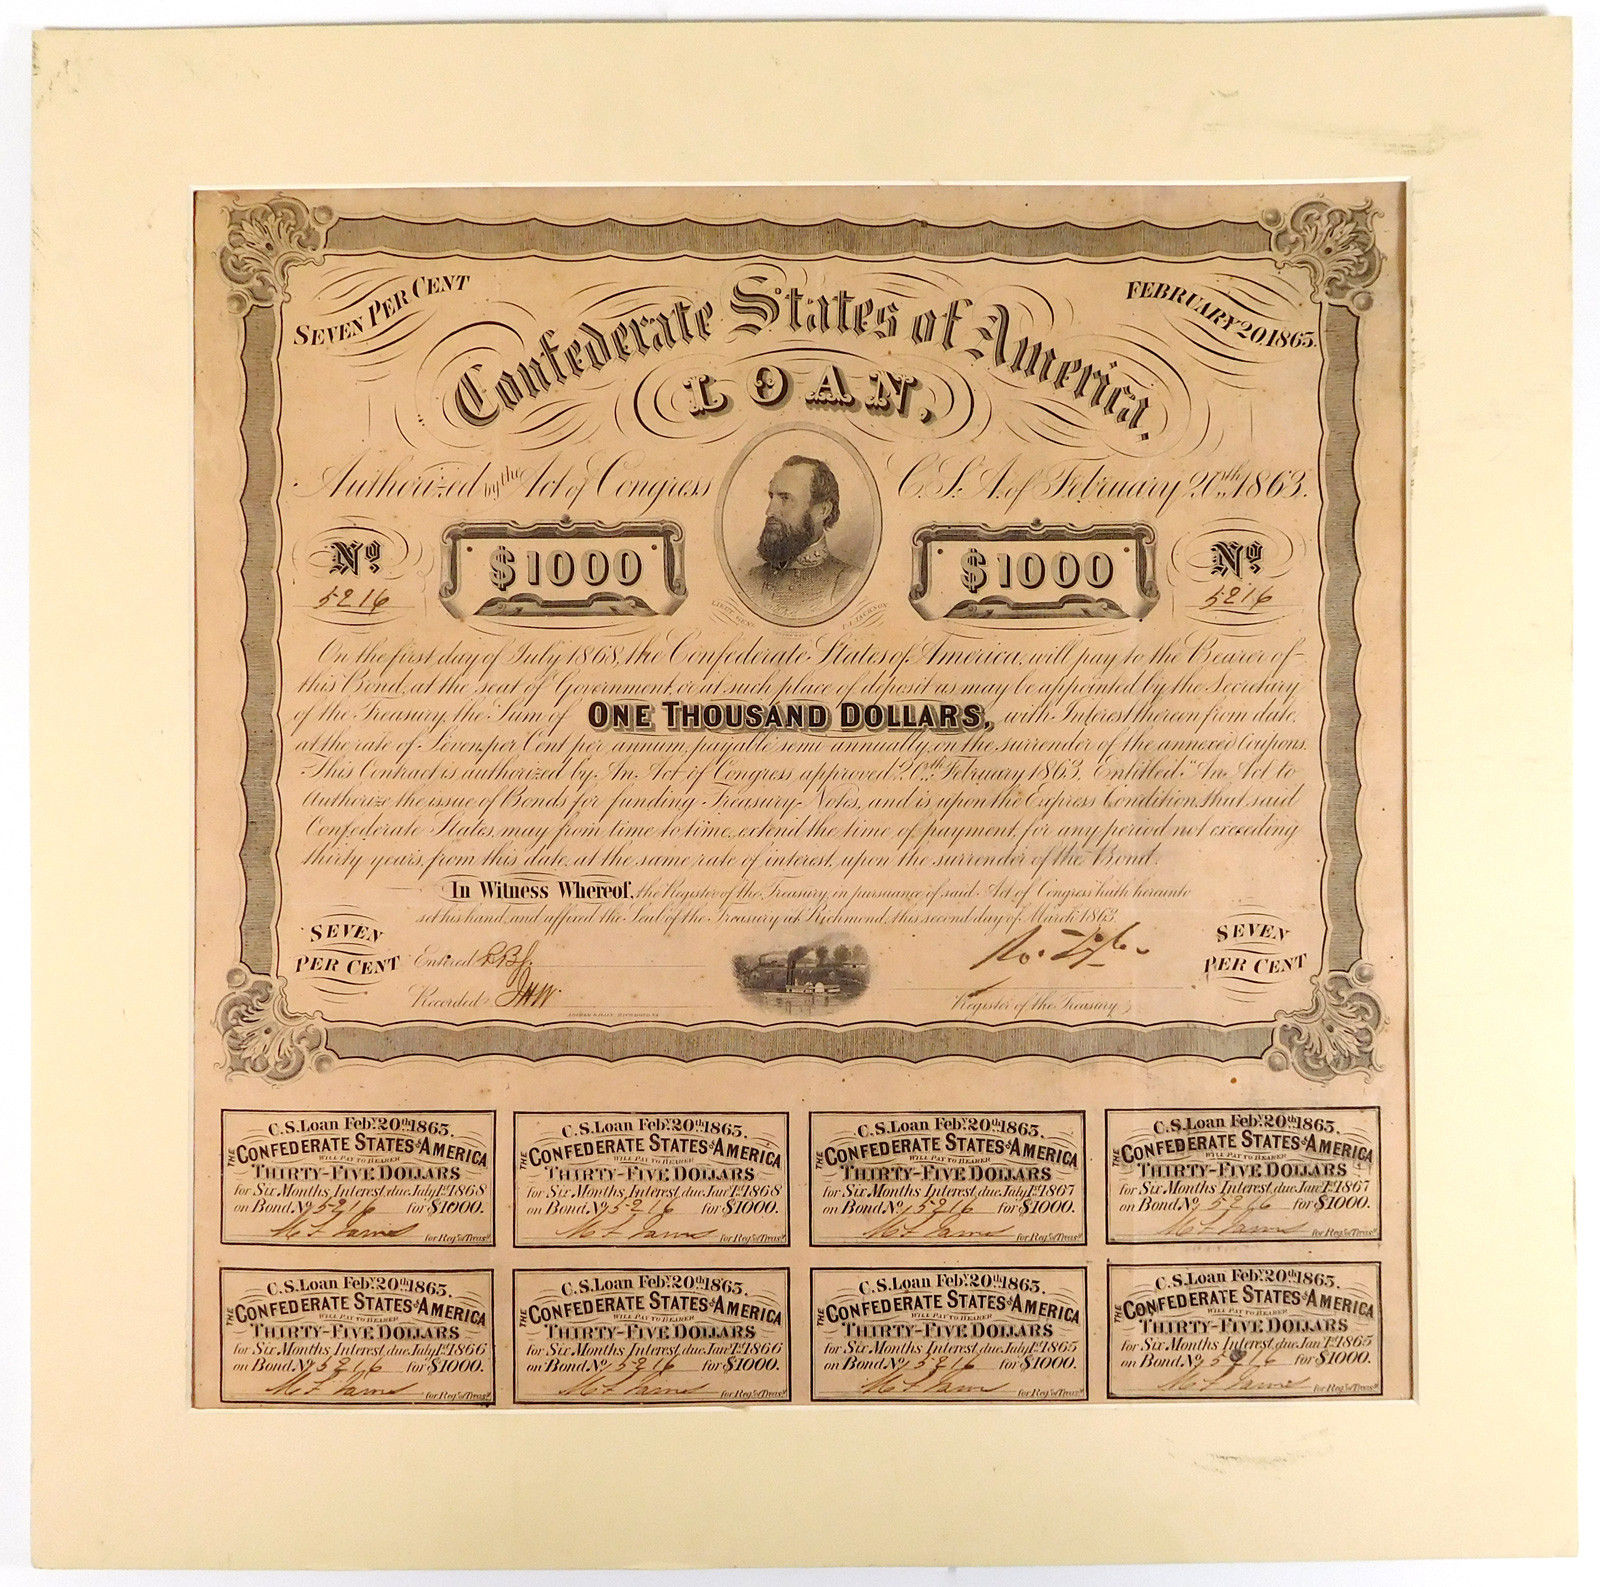 SEVEN PER CENT
FEBRUARY 20, 1863.
Confederate States of America.
LOAN.
Authorized by the Act of Congress C.S.A. of February 20th 1863.
No $1000 $1000 No
5216 5216
LIEUT. GEN. T.J. JACKSON
On the first day of July 1868, the Confederate States of America, will pay to the Bearer of
this Bond, at the seat of Government, or at such place of deposit as may be appointed by the Secretary
of the Treasury, the Sum of ONE THOUSAND DOLLARS, with Interest thereon from date,
at the rate of Seven per Cent per annum, payable semi-annually, on the surrender of the annexed Coupons.
This Contract is authorized by An Act of Congress approved 20th February 1863, Entitled, "An Act to
Authorize the issue of Bonds for funding Treasury Notes, and is upon the Express Condition that said
Confederate States, may from time to time, extend the time of payment, for any period not exceeding
thirty years, from this date, at the same rate of interest, upon the surrender of the Bond.
In Witness Whereof, the Register of the Treasury, in pursuance of said Act of Congress hath hereunto
set his hand, and affixed the Seal of the Treasury at Richmond, this second day of March 1863.
SEVEN PER CENT
Entered
Recorded
Register of the Treasury
SEVEN PER CENT
C.S. Loan Feby. 20th 1863.
THE CONFEDERATE STATES OF AMERICA
WILL PAY TO BEARER
THIRTY-FIVE DOLLARS
for Six Months Interest, due July 1st 1868
on Bond No 5216 for $1000.
for Reg. of Treasy
C.S. Loan Feby. 20th 1863.
THE CONFEDERATE STATES OF AMERICA
WILL PAY TO BEARER
THIRTY-FIVE DOLLARS
for Six Months Interest, due Jany 1st 1868
on Bond No 5216 for $1000.
for Reg. of Treasy
C.S. Loan Feby. 20th 1863.
THE CONFEDERATE STATES OF AMERICA
WILL PAY TO BEARER
THIRTY-FIVE DOLLARS
for Six Months Interest, due July 1st 1867
on Bond No 5216 for $1000.
for Reg. of Treasy
C.S. Loan Feby. 20th 1863.
THE CONFEDERATE STATES OF AMERICA
WILL PAY TO BEARER
THIRTY-FIVE DOLLARS
for Six Months Interest, due Jany 1st 1867
on Bond No 5216 for $1000.
for Reg. of Treasy
C.S. Loan Feby. 20th 1863.
THE CONFEDERATE STATES OF AMERICA
WILL PAY TO BEARER
THIRTY-FIVE DOLLARS
for Six Months Interest, due July 1st 1866
on Bond No 5216 for $1000.
for Reg. of Treasy
C.S. Loan Feby. 20th 1863.
THE CONFEDERATE STATES OF AMERICA
WILL PAY TO BEARER
THIRTY-FIVE DOLLARS
for Six Months Interest, due Jany 1st 1866
on Bond No 5216 for $1000.
for Reg. of Treasy
C.S. Loan Feby. 20th 1863.
THE CONFEDERATE STATES OF AMERICA
WILL PAY TO BEARER
THIRTY-FIVE DOLLARS
for Six Months Interest, due July 1st 1865
on Bond No 5216 for $1000.
for Reg. of Treasy
C.S. Loan Feby. 20th 1863.
THE CONFEDERATE STATES OF AMERICA
WILL PAY TO BEARER
THIRTY-FIVE DOLLARS
for Six Months Interest, due Jany 1st 1865
on Bond No 5216 for $1000.
for Reg. of Treasy